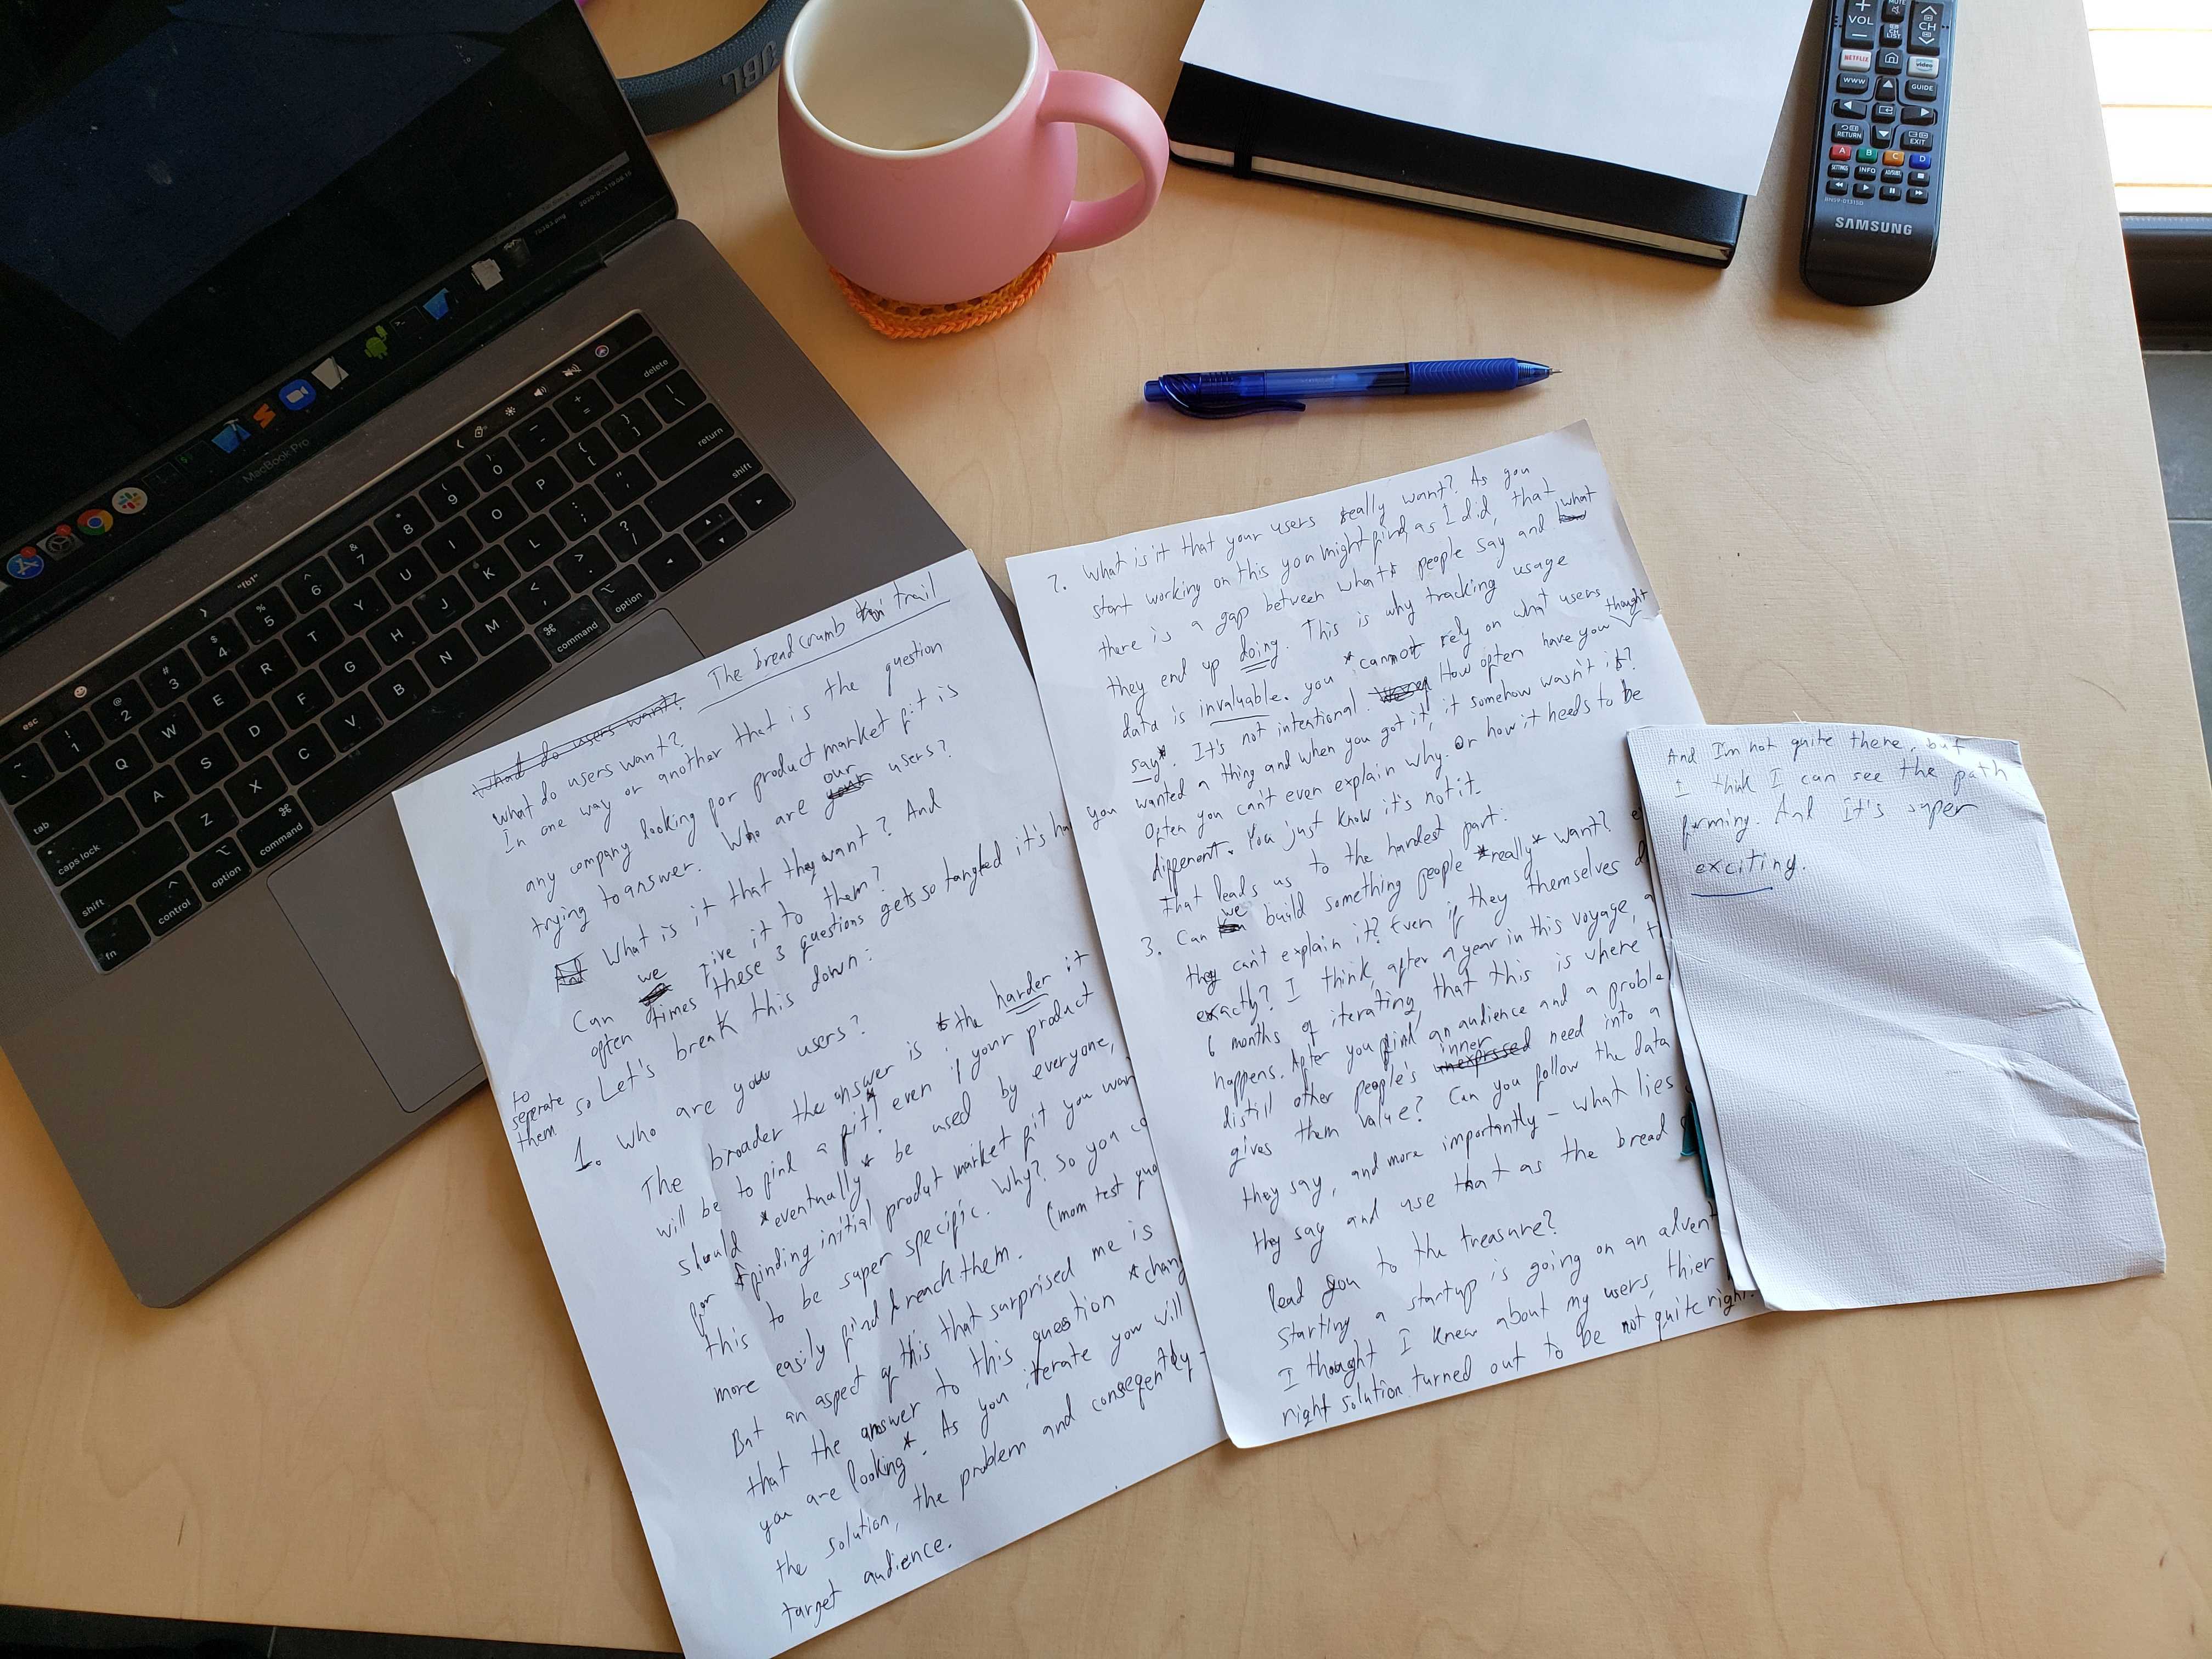 The breadcrumb trail
What do users want?
What do users want?
In one way or another that is the question
any company looking for product market fit is
trying to answer. Who are our users?
What is it that they want? And
Can we give it to them?
often times these 3 questions gets so tangled it's ha
to seperate them so Let's break this down:
1. Who are your users?
The broader the answer is *the harder it
will be to find a fit* even if your product
should *eventually* be used by everyone,
for finding initial produt market fit you wan
this to be super specific. Why? So you ca
more easily find & reach them. (mom test quo
But an aspect of this that surprised me is
that the answer to this question *chang
you are looking*. As you iterate you will
the solution, the problem and conseqently
target audience.
2. What is it that your users really want? As you
start working on this you might find, as I did, that
there is a gap between what people say and what
they end up doing. This is why tracking usage
data is invaluable. you *cannot rely on what users
say*. It's not intentional. How often have you thought
you wanted a thing and when you got it, it somehow wasn't it?
Often you can't even explain why. Or how it needs to be
different. You just know it's not it.
That leads us to the hardest part:
3. Can we build something people *really* want? e
they can't explain it? Even if they themselves d
exactly? I think, after a year in this voyage, a
6 months of iterating, that this is where t
happens. After you find an audience and a proble
distill other people's inner unexprssed need into a
gives them value? Can you follow the data
they say, and more importantly - what lies
they say and use that as the bread
lead you to the treasure?
Starting a startup is going on an advent
I thought I knew about my users, thier
right solution turned out to be not quite right.
And I'm not quite there, but
I think I can see the path
forming. And It's super
exciting.
JBL
MacBook Pro
"fb1"
esc
delete
tab
return
caps lock
shift
shift
fn
control
option
command
command
option
VOL
MUTE
CH LIST
CH
NETFLIX
video
WWW
GUIDE
RETURN
EXIT
A B C D
SETTINGS INFO AD/SUBT.
BN59-01315D
SAMSUNG